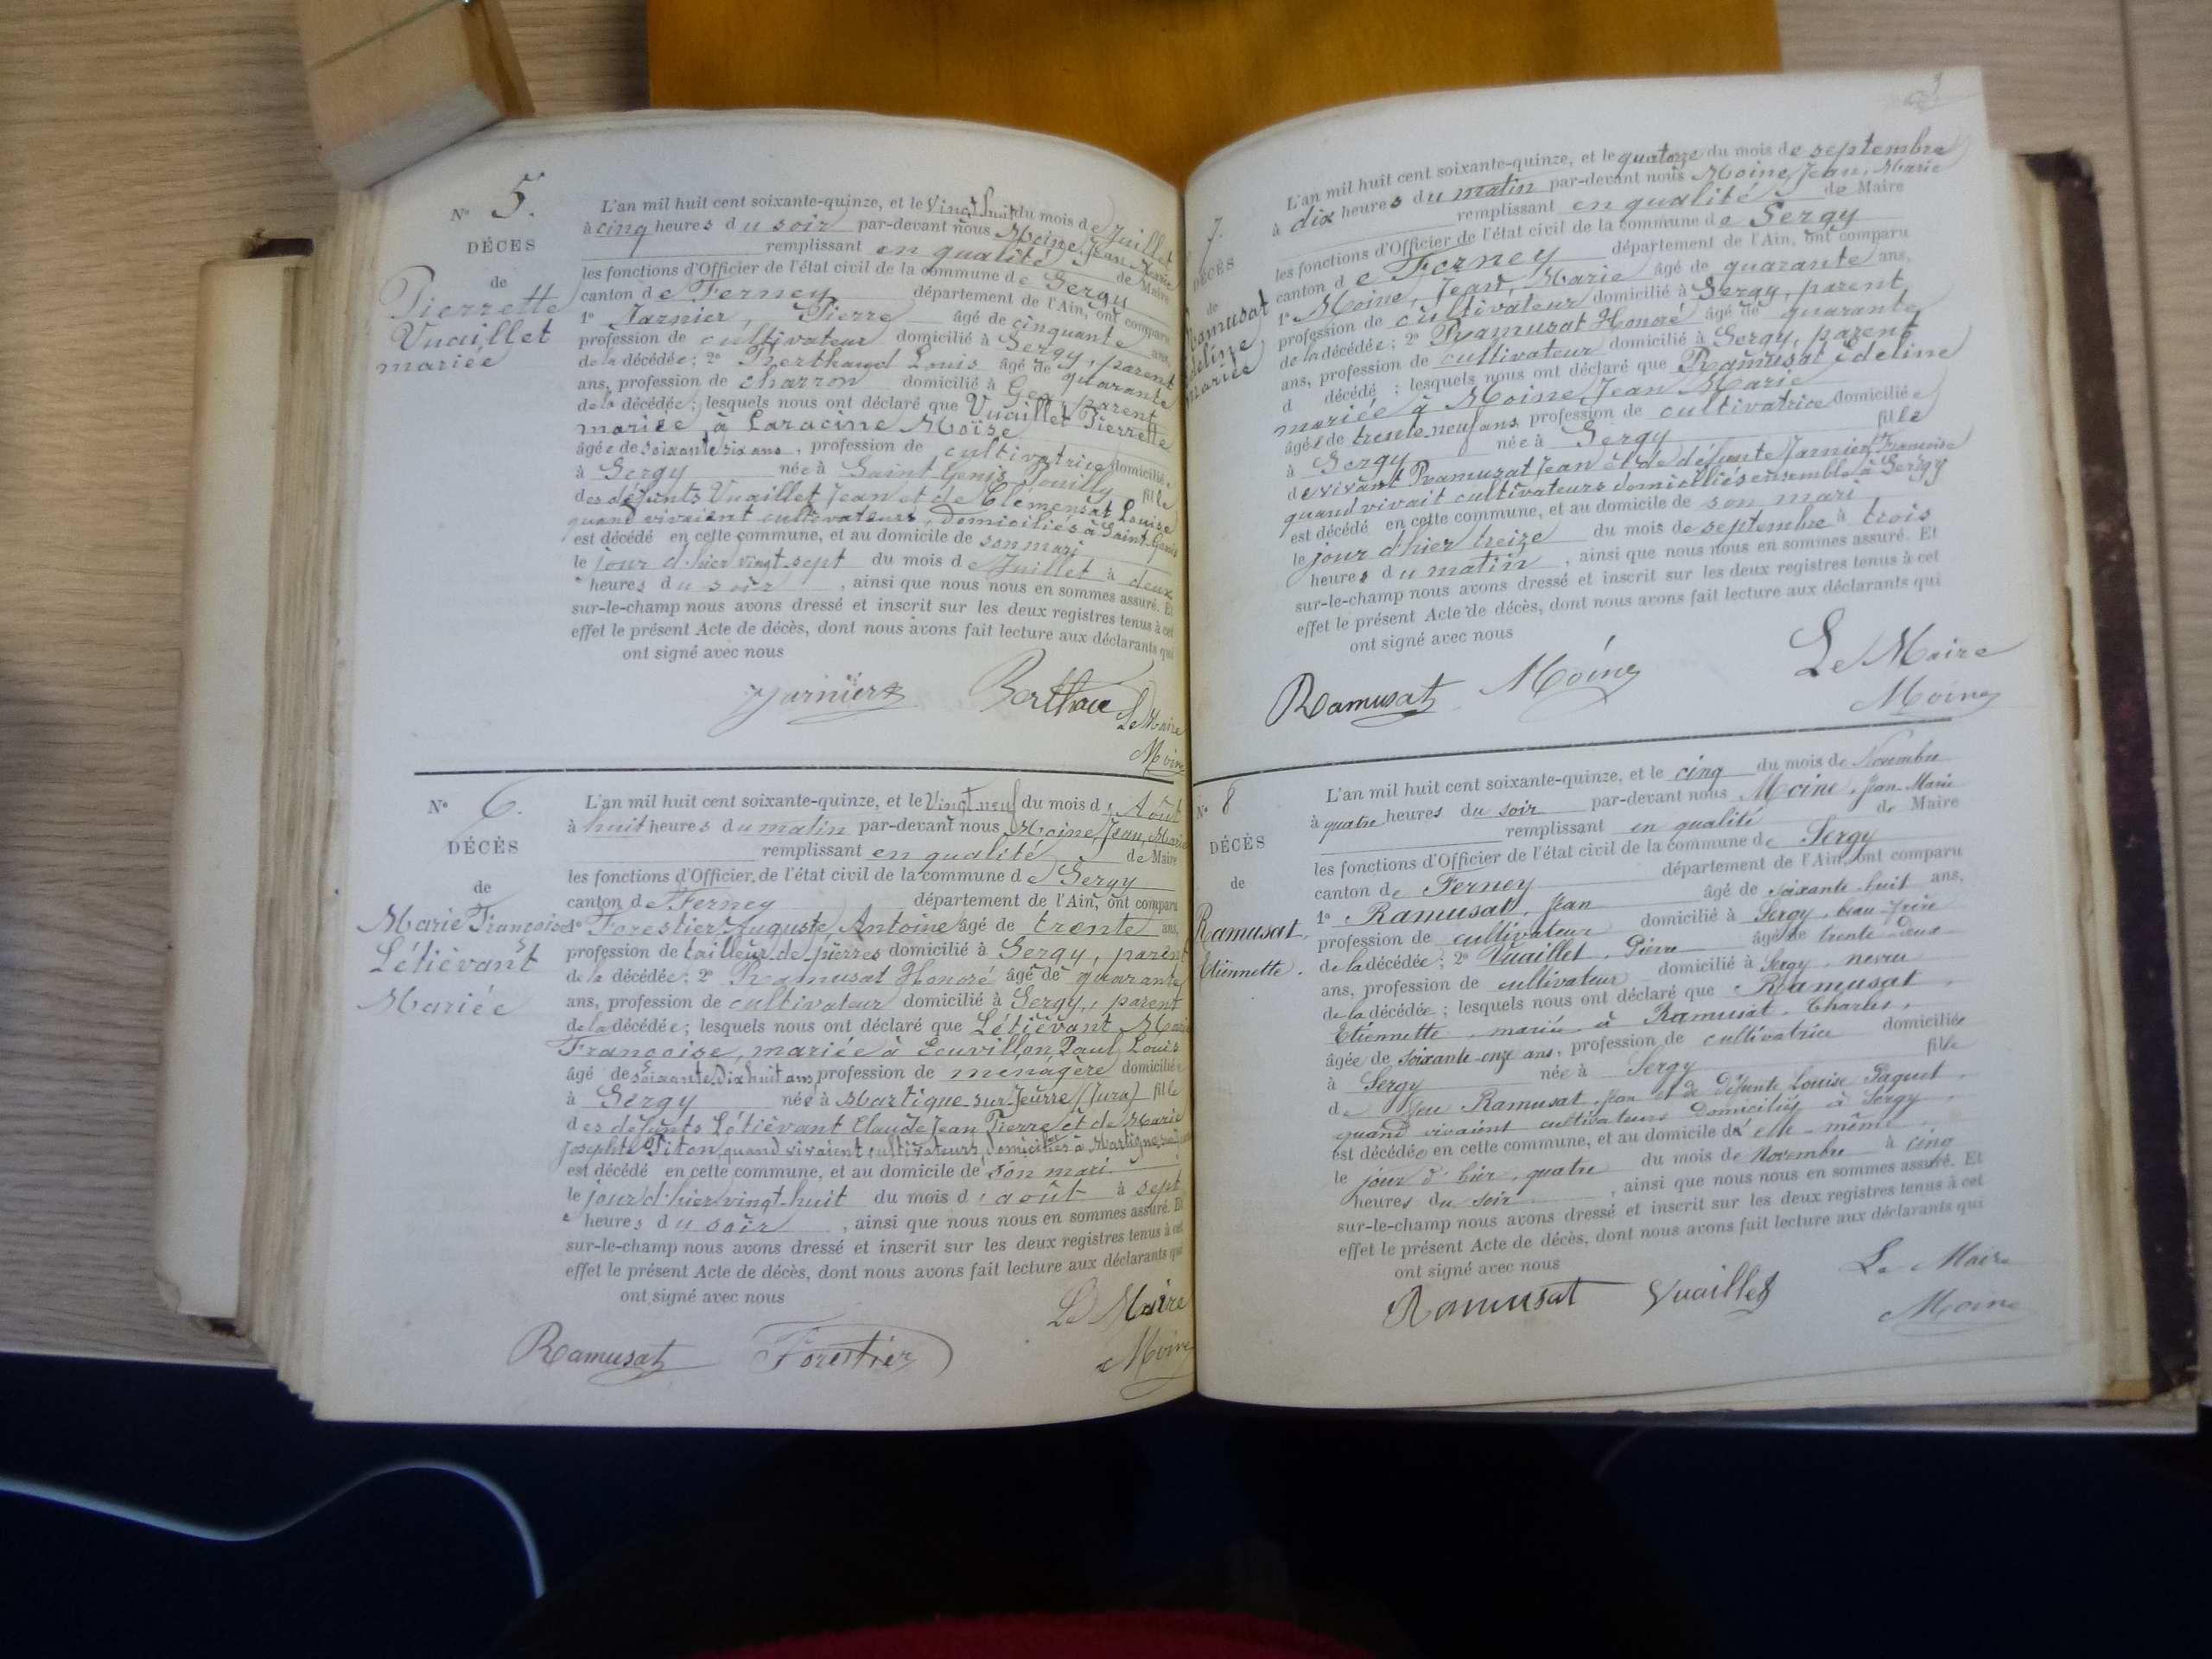 N° 5.
DÉCES
de
Pierrette
Vuaillet
mariée
L'an mil huit cent soixante-quinze, et le Vingt huit du mois de Juillet
à cinq heures du soir par-devant nous Moine, Jean Marie
remplissant en qualité de Maire
les fonctions d'Officier de l'état civil de la commune de Sergy
canton de Ferney département de l'Ain, ont comparu
1° Jarnier, Pierre âgé de cinquante ans,
profession de cultivateur domicilié à Sergy, parent
de la décédée; 2° Berthaud Louis âgé de quarante
ans, profession de charron domicilié à Gex, parent
de la décédée; lesquels nous ont déclaré que Vuaillet Pierrette
mariée à Laracine Moïse
âgée de soixante six ans, profession de cultivatrice domiciliée
à Sergy née à Saint Genis Pouilly fille
des défunts Vuaillet Jean et de Clémensat Louise
quand vivaient cultivateurs, domiciliés à Saint-Genis
est décédé en cette commune, et au domicile de son mari
le jour d'hier vingt-sept du mois de Juillet à deux
heures du soir, ainsi que nous nous en sommes assuré. Et
sur-le-champ nous avons dressé et inscrit sur les deux registres tenus à cet
effet le présent Acte de décès, dont nous avons fait lecture aux déclarants qui
ont signé avec nous
Jarnier Berthau Le Maire
Moine
N° 6.
DÉCÈS
de
Marie Françoise
Létiévant
Mariée
L'an mil huit cent soixante-quinze, et le Vingt neuf du mois d'Août
à huit heures du matin par-devant nous Moine, Jean, Marie
remplissant en qualité de Maire
les fonctions d'Officier de l'état civil de la commune de Sergy
canton de Ferney département de l'Ain, ont comparu
1° Forestier Auguste Antoine âgé de trente ans,
profession de tailleur de pierres domicilié à Sergy, parent
de la décédée; 2° Ramusat Honoré âgé de quarante
ans, profession de cultivateur domicilié à Sergy, parent
de la décédée; lesquels nous ont déclaré que Létiévant Marie
Françoise, mariée à Ecuvillon Paul, Louis
âgé de soixante Dix huit ans, profession de ménagère domiciliée
à Sergy née à Martigne sur Jeurre (Jura) fille
des défunts Létiévant Claude Jean Pierre et de Marie
Josephte Piton quand vivaient cultivateurs, domiciliés à Martigne
est décédé en cette commune, et au domicile de son mari
le jour d'hier vingt-huit du mois d'août à sept
heures du soir, ainsi que nous nous en sommes assuré. Et
sur-le-champ nous avons dressé et inscrit sur les deux registres tenus à cet
effet le présent Acte de décès, dont nous avons fait lecture aux déclarants qui
ont signé avec nous
Le Maire
Ramusat Forestier Moine
3
7.
DÉCÈS
de
Ramusat
édeline
mariée
L'an mil huit cent soixante-quinze, et le quatorze du mois de septembre
à dix heures du matin par-devant nous Moine, Jean, Marie
remplissant en qualité de Maire
les fonctions d'Officier de l'état civil de la commune de Sergy
canton de Ferney département de l'Ain, ont comparu
1° Moine, Jean, Marie âgé de quarante ans,
profession de cultivateur domicilié à Sergy, parent
de la décédée; 2° Ramusat Honoré âgé de quarante
ans, profession de cultivateur domicilié à Sergy, parent
d décédé; lesquels nous ont déclaré que Ramusat édeline
mariée à Moine Jean Marie
âgée de trente neuf ans, profession de cultivatrice domiciliée
à Sergy née à Sergy fille
de vivant Ramusat Jean et de défunte Jarnier Françoise
quand vivait cultivateurs domiciliés ensemble à Sergy
est décédé en cette commune, et au domicile de son mari
le jour d'hier treize du mois de septembre à trois
heures du matin, ainsi que nous nous en sommes assuré. Et
sur-le-champ nous avons dressé et inscrit sur les deux registres tenus à cet
effet le présent Acte de décès, dont nous avons fait lecture aux déclarants qui
ont signé avec nous
Le Maire
Ramusat Moine Moine
N° 8
DÉCÈS
de
Ramusat,
Etiennette.
L'an mil huit cent soixante-quinze, et le cinq du mois de Novembre
à quatre heures du soir par-devant nous Moine, Jean-Marie
remplissant en qualité de Maire
les fonctions d'Officier de l'état civil de la commune de Sergy
canton de Ferney département de l'Ain, ont comparu
1° Ramusat, Jean âgé de soixante-huit ans,
profession de cultivateur domicilié à Sergy, beau-frère
de la décédée; 2° Vuaillet, Pierre âgé de trente-deux
ans, profession de cultivateur domicilié à Sergy, neveu
de la décédée; lesquels nous ont déclaré que Ramusat,
Etiennette, mariée à Ramusat, Charles,
âgée de soixante-onze ans, profession de cultivatrice domiciliée
à Sergy née à Sergy fille
de feu Ramusat, Jean et de défunte Louise Paquet,
quand vivaient cultivateurs domiciliés à Sergy,
est décédée en cette commune, et au domicile d'elle-même
le jour d'hier, quatre du mois de Novembre à cinq
heures du soir, ainsi que nous nous en sommes assuré. Et
sur-le-champ nous avons dressé et inscrit sur les deux registres tenus à cet
effet le présent Acte de décès, dont nous avons fait lecture aux déclarants qui
ont signé avec nous
Le Maire
Ramusat Vuaillet Moine